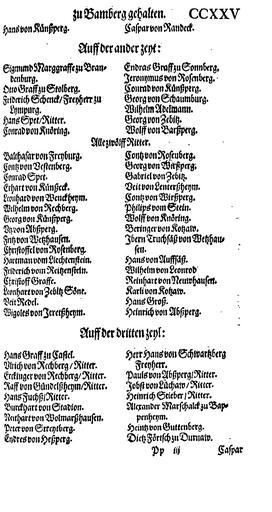 zu Bamberg gehalten. CCXXV
Hans von Künßperg. Caspar von Randeck.
Auff der ander zeyt:
Sigmund Marggraffe zu Bran-
denburg.
Otto Graff zu Stolberg.
Friderich Schenck/ Freyherr zu
Lympurg.
Hans Spet/ Ritter.
Conrad von Knöring.
Endras Graff zu Sonnberg.
Jeronymus von Rosenberg.
Conrad von Künßperg.
Georg von Schaumburg.
Wilhelm Adelmann.
Georg von Zebitz.
Wolff von Barßperg.
Alle zwölff Ritter.
Balthasar von Freyburg.
Contz von Vestenberg.
Conrad Spet.
Erhart von Künßeck.
Leonhard von Wenckheym.
Wilhelm von Rechberg.
Georg von Künßperg.
Vtz von Abßperg.
Fritz von Wetzhausen.
Christoffel von Rosenberg.
Hartman vom Liechtenstein.
Friderich vom Reitzenstein.
Christoff Graffe.
Leonhart von Zebitz Söne.
Veit Redel.
Wigoles von Jeretßheym.
Contz von Rosenberg.
Georg von Wirßperg.
Gabriel von Zebitz.
Veit von Lentersheym.
Contz von Wirßperg.
Philips vom Stein.
Wolff von Knöring.
Beringer von Kotzaw.
Ibern Truchsäß von Wetzhau-
sen.
Hans von Auffsäß.
Wilhelm von Leonrod
Reinhart von Newhausen.
Karli von Kotzaw.
Hans Groß.
Heinrich von Abßperg.
Auff der dritten zeyt:
Hans Graff zu Castel.
Vlrich von Rechberg/ Ritter.
Erckinger von Rechberg/ Ritter.
Raff von Gündelßheym/ Ritter.
Hans Fuchß/ Ritter.
Burckhart von Stadion.
Neithart von Wolmarßhausen.
Peter von Streytberg.
Endres von Heßperg.
Herr Hans von Schwartzberg
Freyherr.
Pauls von Abßperg/ Ritter.
Jobst von Lüchaw/ Ritter.
Heinrich Stieber/ Ritter.
Alexander Marschalck zu Bap-
penheym.
Heintz von Guttenberg.
Dietz Förtsch zu Durnaw.
Pp iij Caspar